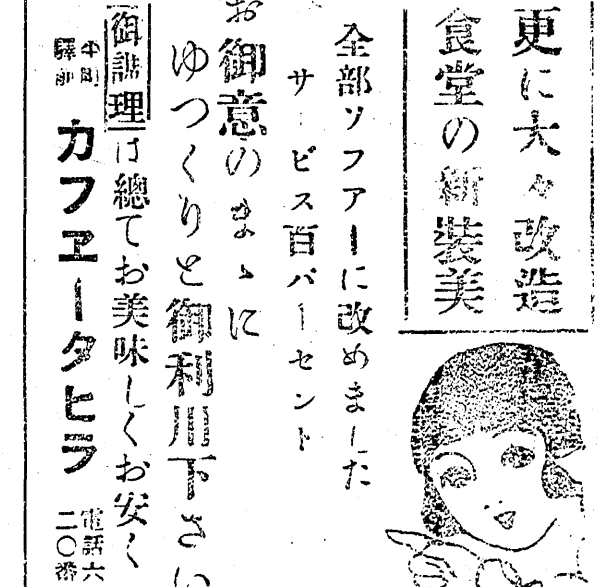 更に大々改造
食堂の新装美
全部ソフアーに改めました
サービス百パーセント
お御意のまゝに
ゆつくりと御利用下さい
御調理は總てお美味しくお安く
中町
驛前
カフヱータヒラ
電話六
二〇番